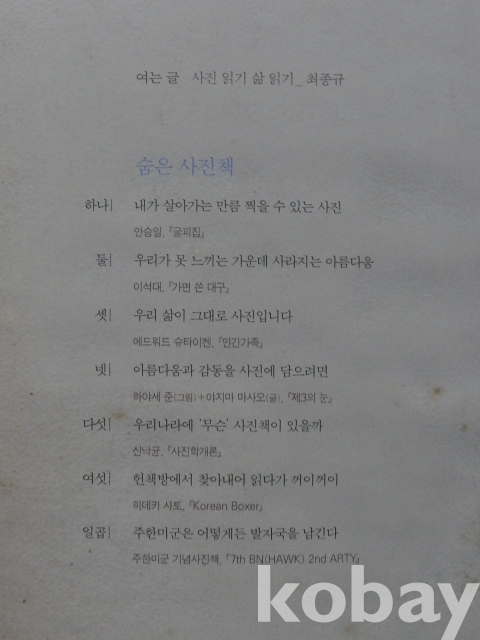 여는 글 사진 읽기 삶 읽기_ 최종규
숨은 사진책
하나| 내가 살아가는 만큼 찍을 수 있는 사진
안승일, 『굴피집』
둘| 우리가 못 느끼는 가운데 사라지는 아름다움
이석대, 『가면 쓴 대구』
셋| 우리 삶이 그대로 사진입니다
에드워드 슈타이켄, 『인간가족』
넷| 아름다움과 감동을 사진에 담으려면
하야세 준(그림)+야지마 마사오(글), 『제3의 눈』
다섯| 우리나라에 '무슨' 사진책이 있을까
신낙균, 『사진학개론』
여섯| 헌책방에서 찾아내어 읽다가 꺼이꺼이
히데키 사토, 『Korean Boxer』
일곱| 주한미군은 어떻게든 발자국을 남긴다
주한미군 기념사진책, 『7th BN(HAWK) 2nd ARTY』
kobay